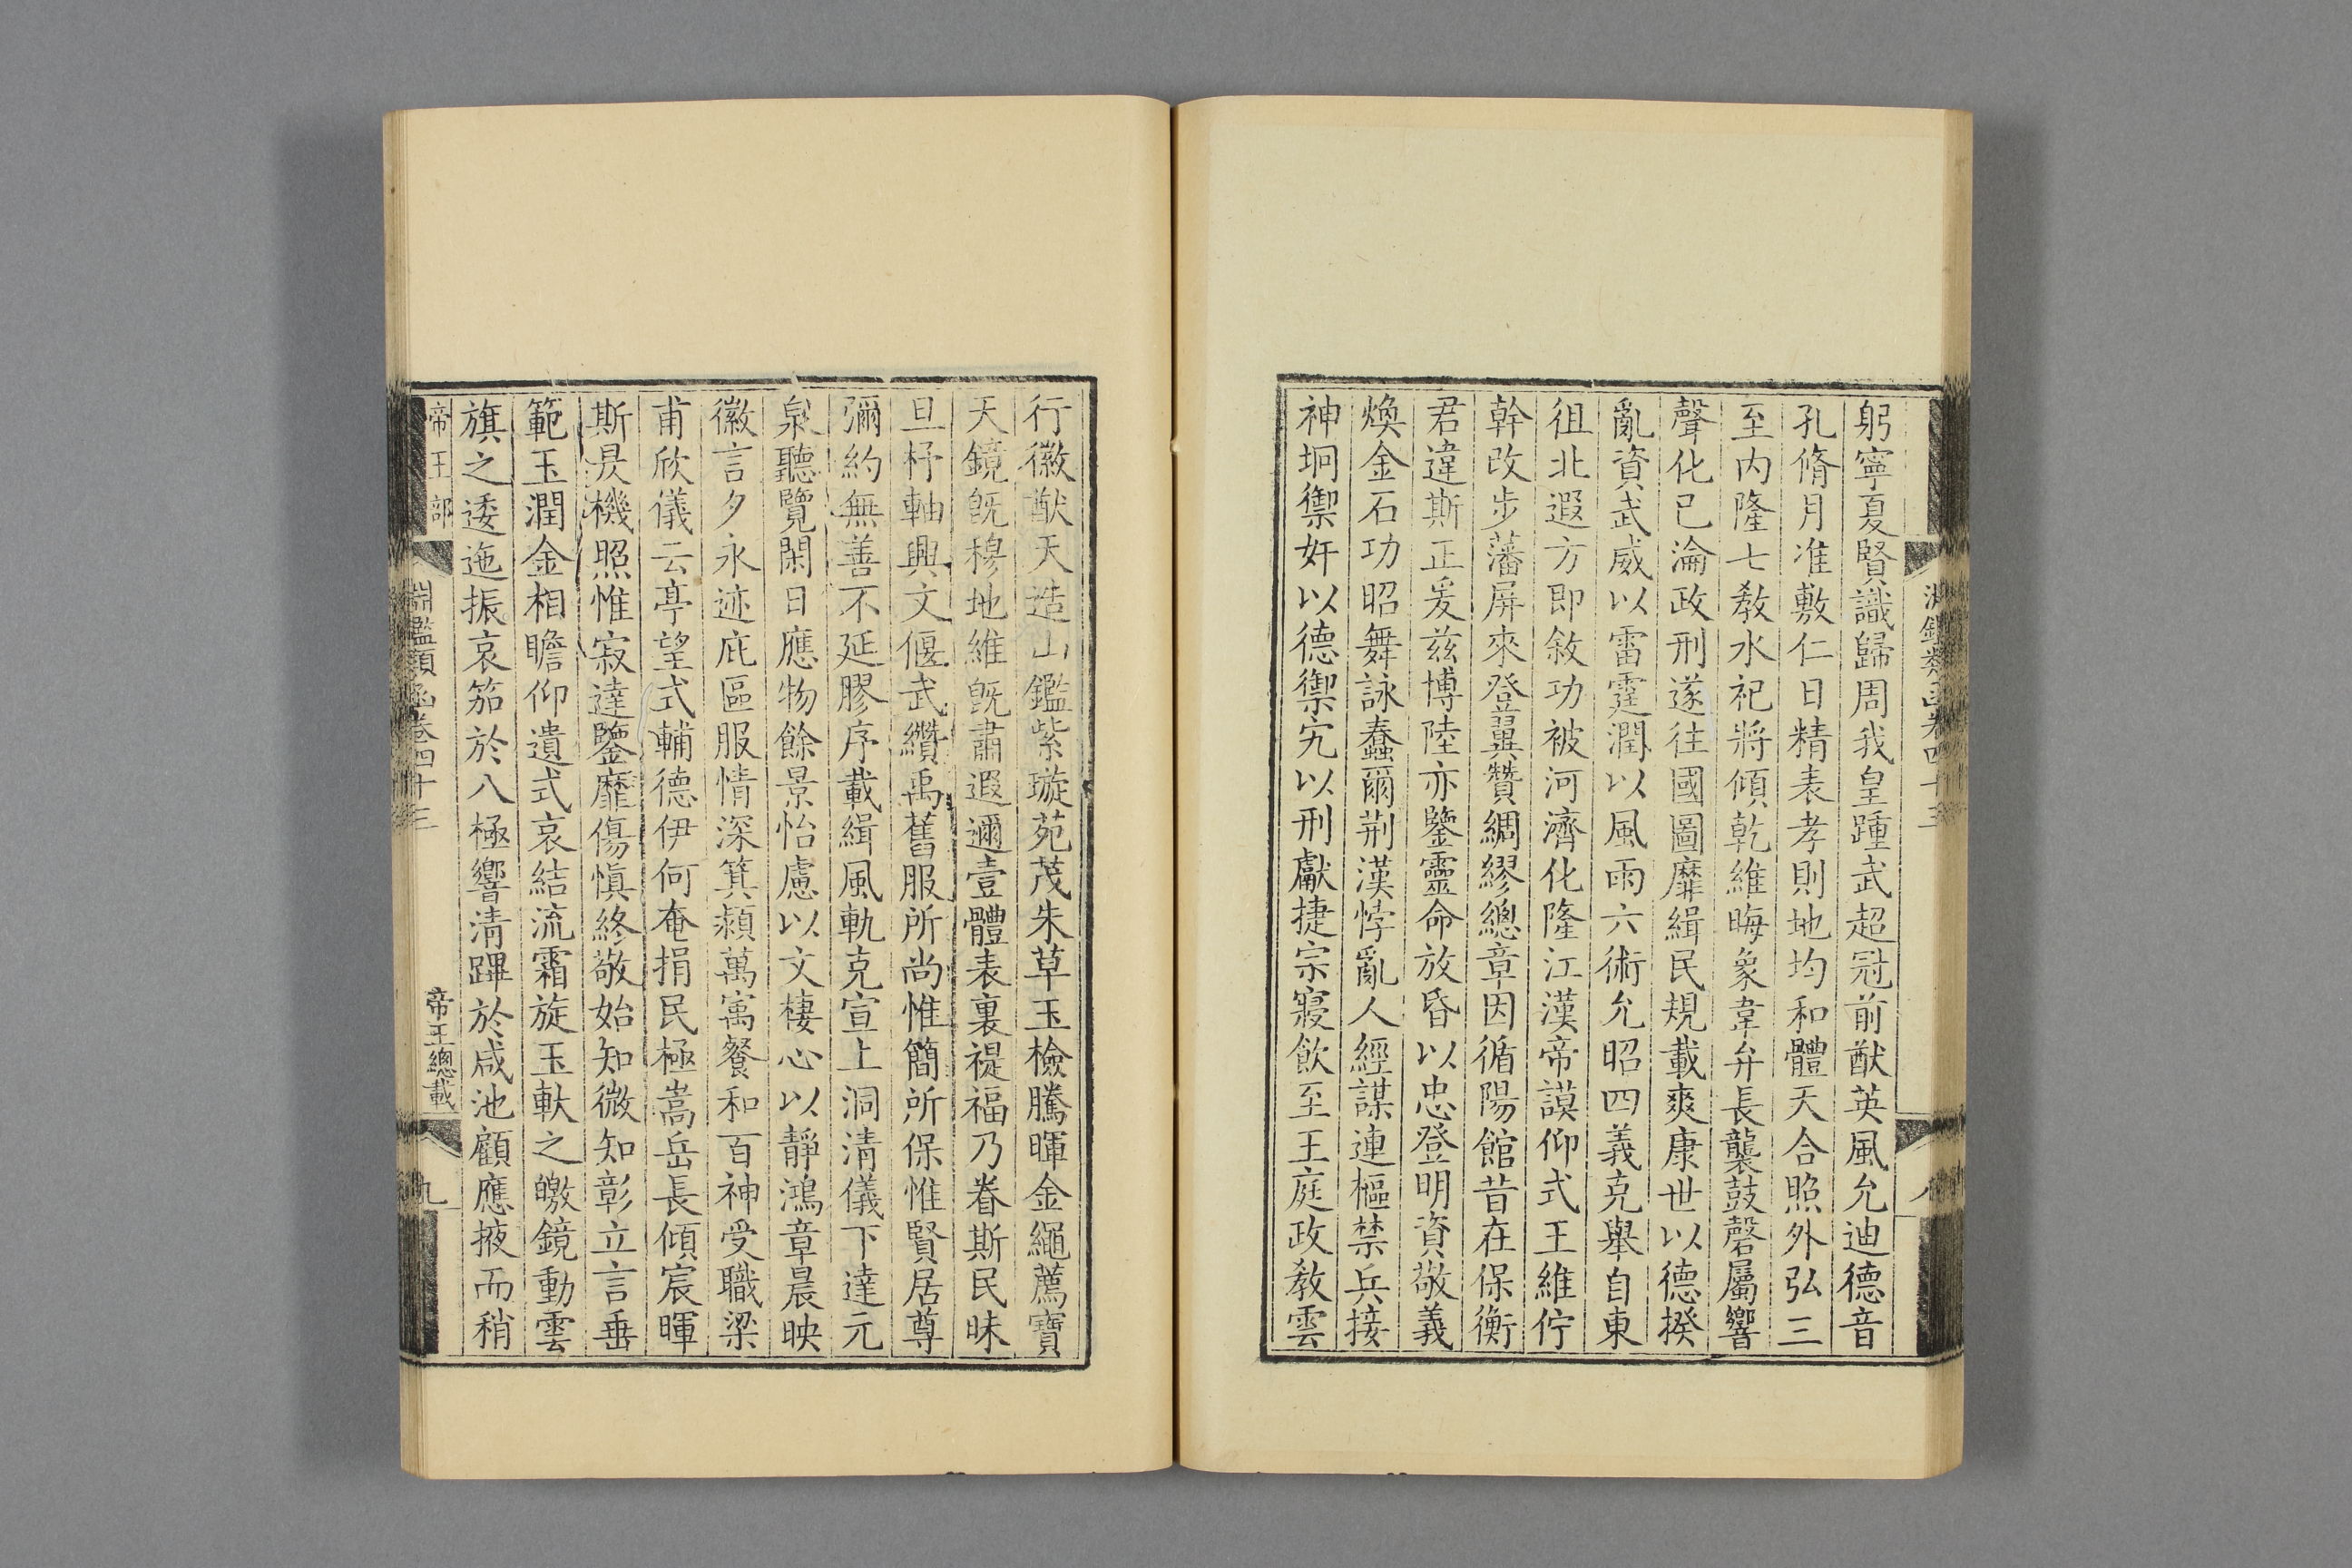 躬寧夏賢識歸周我皇踵武超冠前猷英風允迪德音
孔脩月准敷仁日精表孝則地均和體天合照外弘三
至内隆七教水祀將傾乾維晦象韋弁長襲鼓磬屬響
聲化已淪政刑遂往國圖靡緝民規載爽康世以德揆
亂資武威以雷霆潤以風雨六術允昭四義克舉自東
徂北遐方即敘功被河濟化隆江漢帝謨仰式王維佇
幹改步藩屏來登翼贊綢繆總章因循陽館昔在保衡
君違斯正爰兹博陸亦鑒靈命放昏以忠登明資敬義
煥金石功昭舞詠蠢爾荆漢悖亂人經謀連樞禁兵接
神坰禦奸以德禦宄以刑獻捷宗寢飲至王庭政教雲
行徽猷天造山鑑紫璇苑茂朱草玉檢騰暉金繩薦寶
天鏡既穆地維既肅遐邇壹體表裏禔福乃眷斯民昧
旦杼軸興文偃武纘禹舊服所尚惟簡所保惟賢居尊
彌約無善不延膠序載緝風軌克宣上洞清儀下達元
泉聽覽閑日應物餘景怡慮以文棲心以靜鴻章晨映
徽言夕永迹庇區服情深箕潁萬寓餐和百神受職梁
甫欣儀云亭望式輔德伊何奄捐民極嵩岳長傾宸暉
斯昃機照惟寂達鑒靡傷愼終敬始知微知彰立言垂
範玉潤金相瞻仰遺式哀結流霜旋玉軑之皦鏡動雲
旗之逶迤振哀笳於八極響清蹕於咸池顧應掖而稍
帝王部
淵鑑類函卷四十三
帝王總載
九